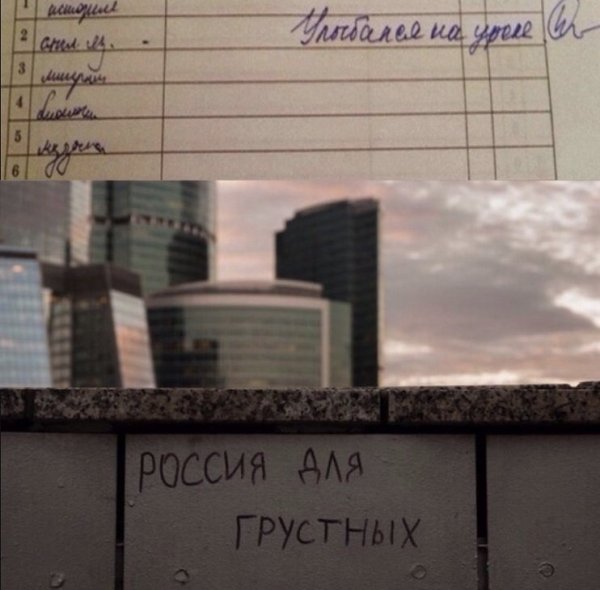 1 история
2 англ. яз. - Улыбался на уроке
3 литерат
4 биологи
5 музыка
6
РОССИЯ ДЛЯ
ГРУСТНЫХ